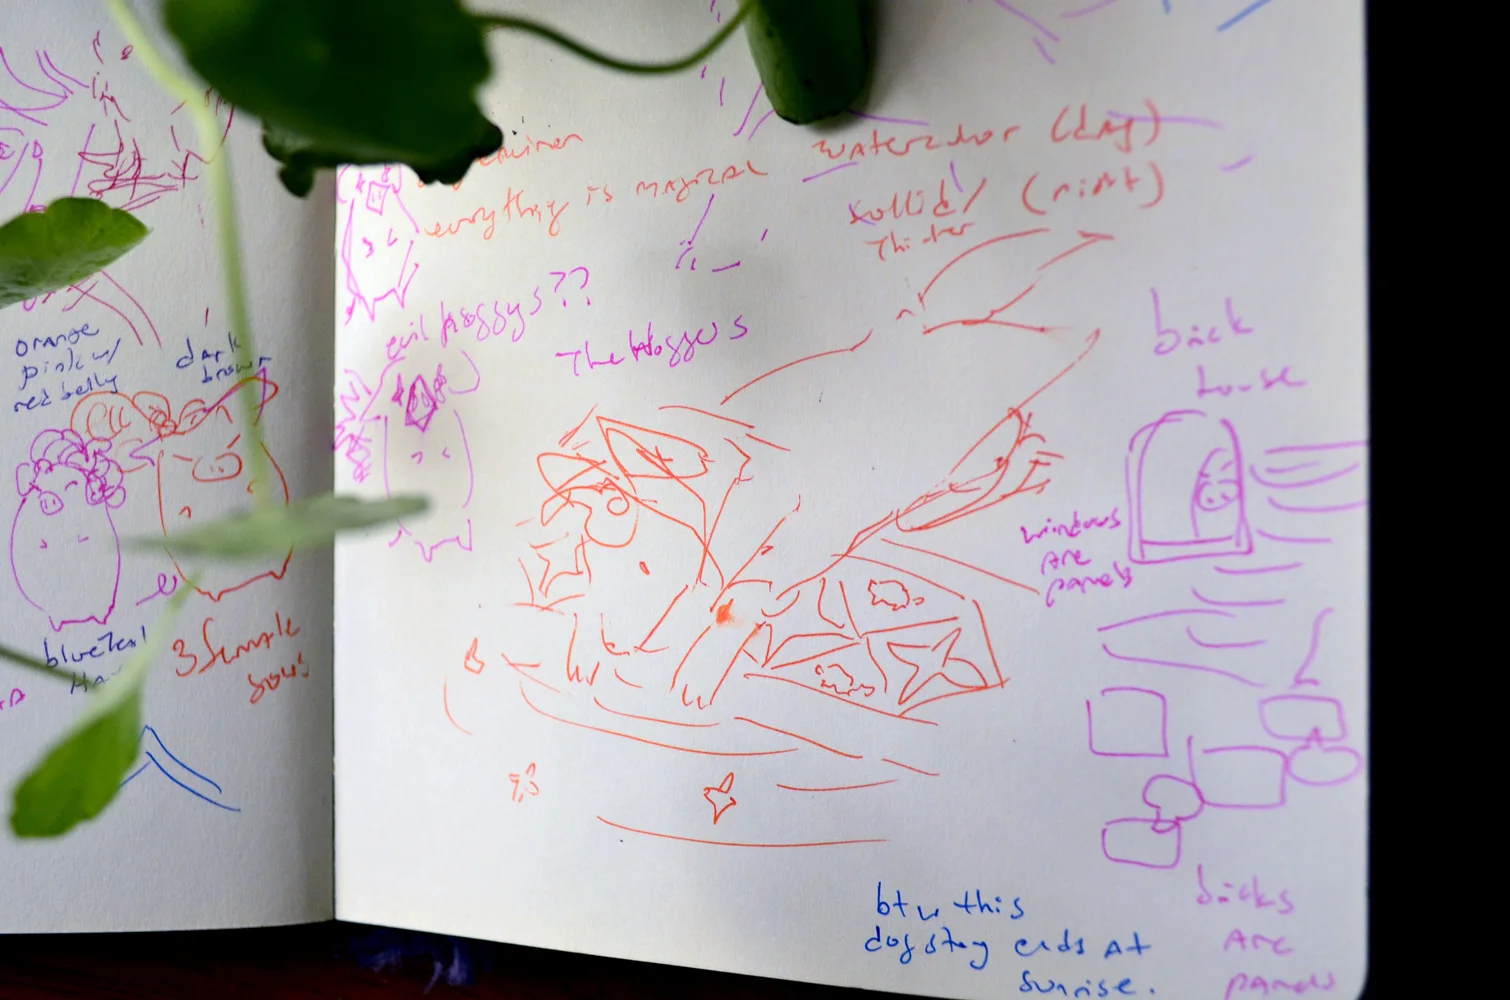 orange
pink w/
red belly
dark
brown
blue/teal
3 female
sows
everything is magical
watercolor (day)
sollid/ (night)
evil hoggys??
The Hoggus
bick
house
windows
are
panels
bicks
are
panels
btw this
dog story ends at
sunrise.